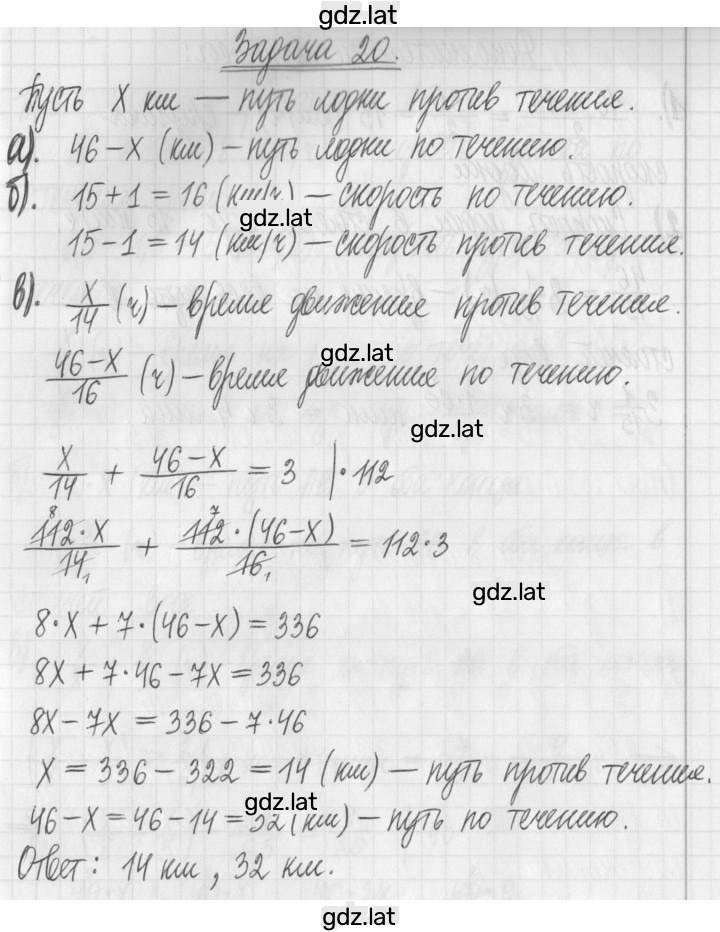 gdz.lat
Задача 20.
Пусть x км — путь лодки против течения.
а). 46 – x (км) – путь лодки по течению.
б). 15 + 1 = 16 (км/ч) – скорость по течению.
gdz.lat
15 – 1 = 14 (км/ч) – скорость против течения.
в). x/14 (ч) – время движения против течения.
gdz.lat
46 – x/16 (ч) – время движения по течению.
gdz.lat
x/14 + 46 – x/16 = 3 | · 112
8 7
112 · x/14 1 + 112 · (46 – x)/16 1 = 112 · 3
gdz.lat
8 · x + 7 · (46 – x) = 336
8x + 7 · 46 – 7x = 336
8x – 7x = 336 – 7 · 46
x = 336 – 322 = 14 (км) — путь против течения.
gdz.lat
46 – x = 46 – 14 = 32 (км) – путь по течению.
Ответ: 14 км, 32 км.
gdz.lat